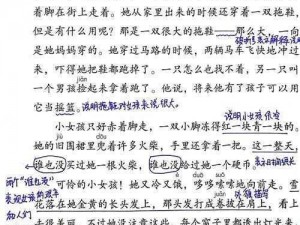 着脚在街上走着。她从家里出来的时候还穿着一双拖鞋,
但是有什么用呢?那是一双很大的拖鞋——那么大,一向
是她妈妈穿的。她穿过马路的时候,两辆马车飞快地冲过
来,吓得她把鞋都跑掉了。一只怎么也找不着,另一只叫
一个男孩捡起来拿着跑了。他说,将来他有了孩子可以用
jiǎn
它当摇篮。
说明拖鞋对小孩来说很大。
小女孩只好赤着脚走,一双小脚冻得红一块青一块的。她
的旧围裙里兜着许多火柴,手里还拿着一把。这一整天,
谁也没买过她一根火柴,谁也没给过她一个硬币。
两个“谁也没”
可怜的小女孩!她又冷又饿,哆哆嗦嗦地向前走。雪
duō suō
花落在她金黄的长头发上,那头发打成卷披在肩上,看上
去很美丽,不过她没注意这些。每个窗子里都透出灯光来